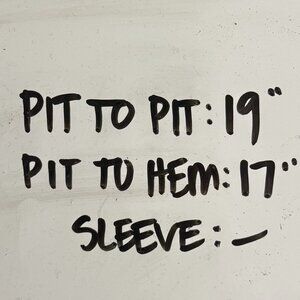 PIT TO PIT: 19"
PIT TO HEM: 17"
SLEEVE: –